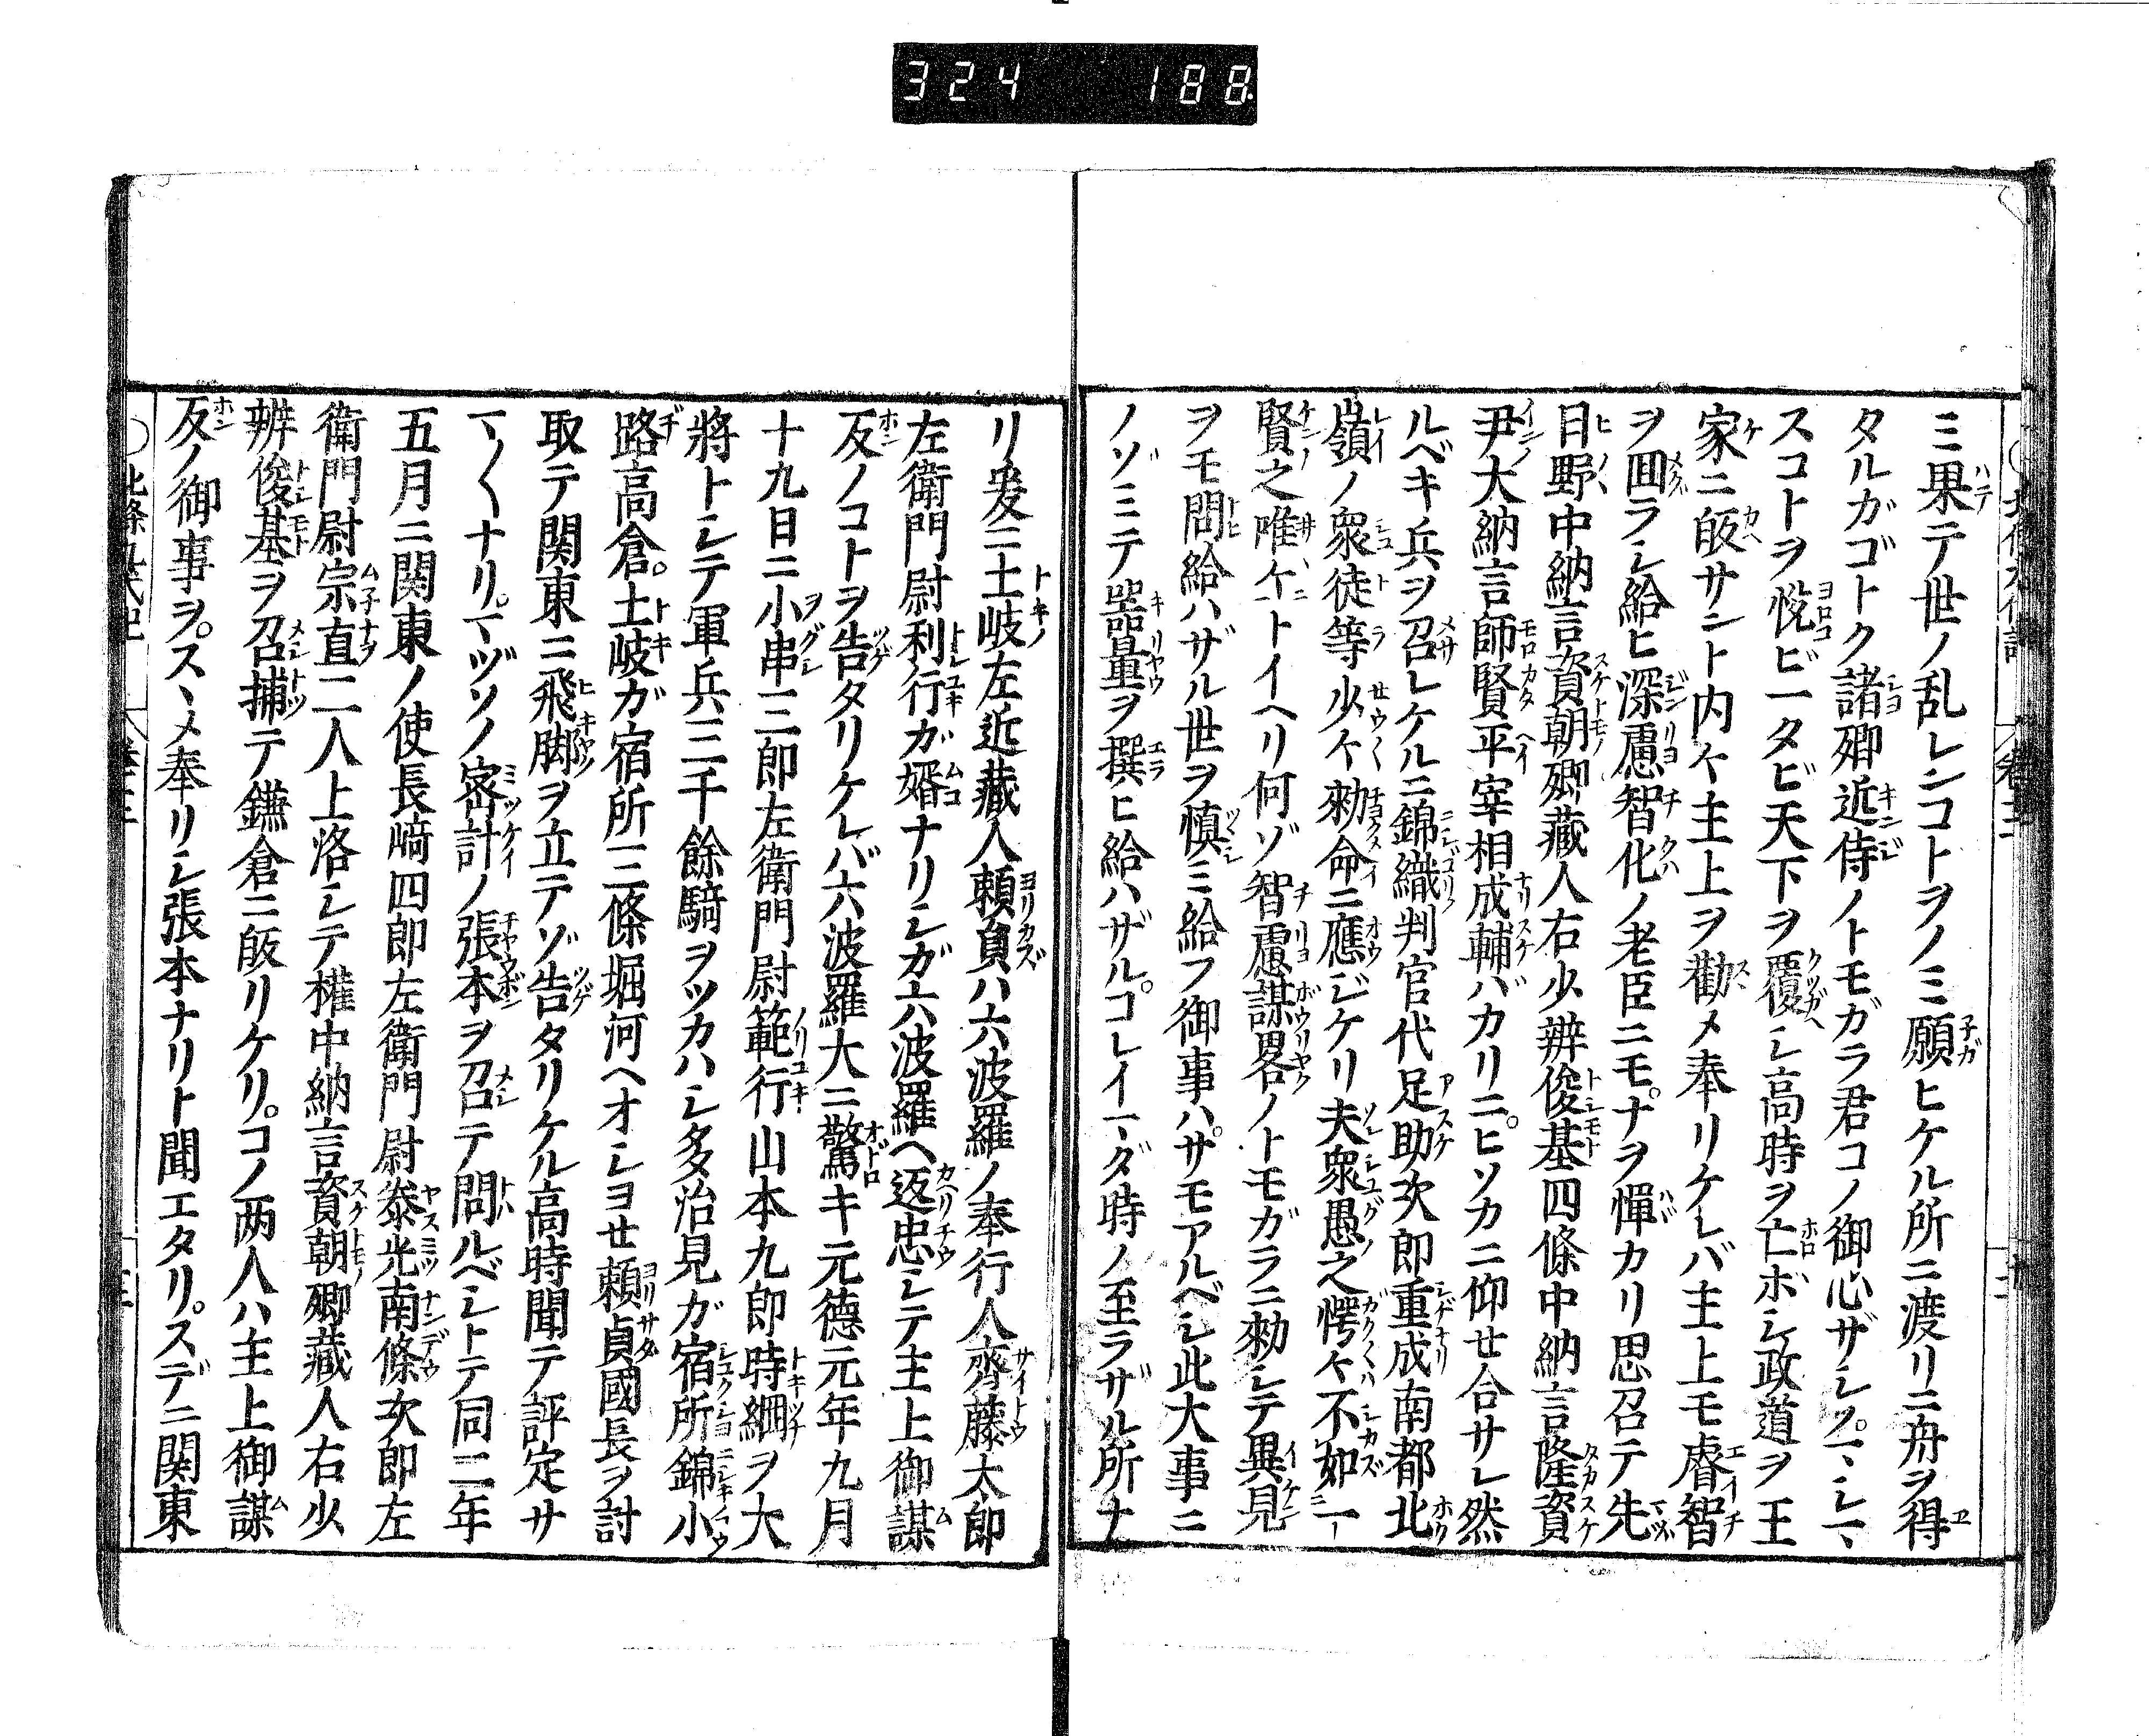 324 188
ミ果テ世ノ乱レンコトヲノミ願ヒケル所ニ渡リニ舟ヲ得
タルガゴトク諸卿近侍ノトモガラ君コノ御心ザシマシマ
スコトヲ悦ビ一タビ天下ヲ覆シ高時ヲ亡ボシ政道ヲ王
家ニ皈サント内々主上ヲ勸メ奉リケレバ主上モ睿智
ヲ囬ラシ給ヒ深慮智化ノ老臣ニモナヲ憚カリ思召テ先
日野中納言資朝卿藏人右少辨俊基四條中納言隆資
尹大納言師賢平宰相成輔バカリニヒソカニ仰せ合サレ然
ルベキ兵ヲ召レケルニ錦織判官代足助次郎重成南都北
嶺ノ衆徒等少々勅命ニ應ジケリ夫衆愚之愕々不如一
賢之唯々トイヘリ何ゾ智慮謀畧ノトモガラニ勅シテ異見
ヲモ問給ハザル世ヲ慎ミ給フ御事ハサモアルベシ此大事ニ
ノゾミテ器量ヲ撰ヒ給ハザルコレイマダ時ノ至ラザル所ナ
リ爰ニ土岐左近藏人頼員ハ六波羅ノ奉行人齊藤太郎
左衛門尉利行ガ婿ナリシガ六波羅ヘ返忠シテ主上御謀
反ノコトヲ告タリケレバ六波羅大ニ驚キ元徳元年九月
十九日ニ小串三郎左衛門尉範行山本九郎時綱ヲ大
將トシテ軍兵三千餘騎ヲツカハシ多治見ガ宿所錦小
路高倉土岐ガ宿所三條堀河ヘオシヨせ頼貞國長ヲ討
取テ関東ニ飛脚ヲ立テゾ告タリケル高時聞テ評定サ
マ〱ナリマヅソノ密計ノ張本ヲ召テ問ルベシトテ同二年
五月ニ関東ノ使長﨑四郎左衛門尉泰光南條次郎左
衛門尉宗直二人上洛シテ權中納言資朝卿藏人右少
辨俊基ヲ召捕テ鎌倉ニ皈リケリコノ两人ハ主上御謀
反ノ御事ヲスヽメ奉リシ張本ナリト聞エタリスデニ関東